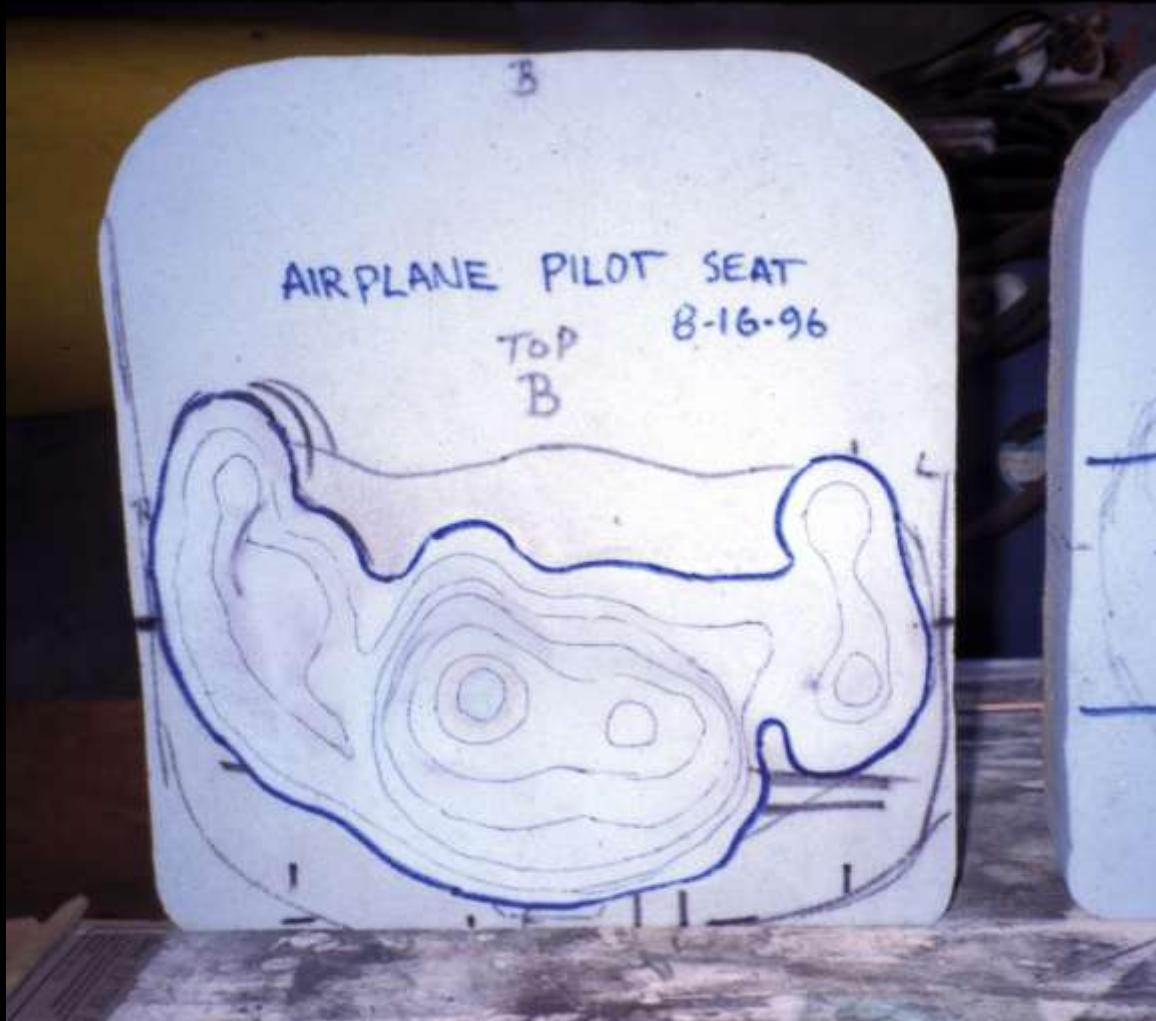 B
AIRPLANE PILOT SEAT
8-16-96
TOP
B
L